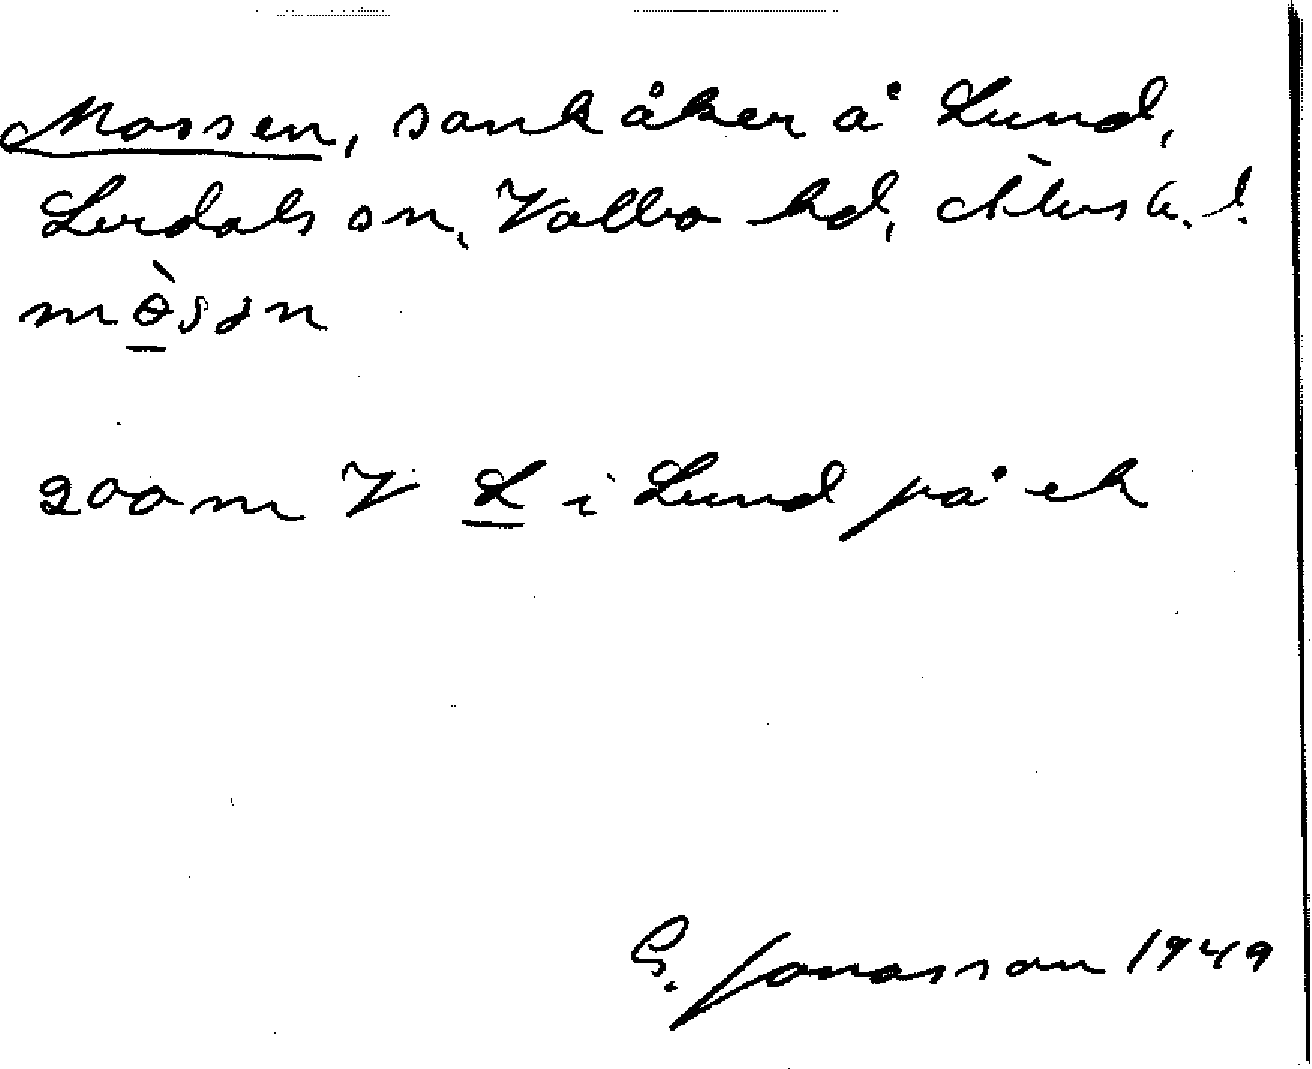 Mossen, sank åker å Lund,
Lerdals sn, Valbo hd, Älvsb. l.
mɵ̀sən
200 m V L i Lund på ek
G. Jonasson 1949